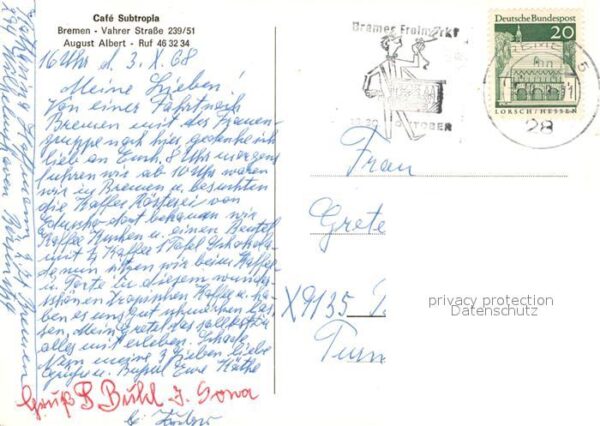 Café Subtropia
Bremen - Vahrer Straße 239/51
August Albert - Ruf 46 32 34
16 Uhr d. 3. X. 68
Meine Lieben!
Von einer Fahrt nach
Bremen mit der Frauen-
gruppe nach hier gedenke ich
lieb an Euch. 8 Uhr morgens
fuhren wir ab 10 Uhr waren
wir in Bremen u. besuchten
die Kaffee Rösterei von
Eduscho dort bekamen wir
Kaffee Kuchen u. einen Beutel
mit ¼ Kaffee 1 Tafel Schokolade
nun sitzen wir beim Kaffee
u. Torte in diesem wunder-
schönen Tropischen Kaffee u. ha-
ben es uns gut schmecken las-
sen. Mein Gretel das solltest du
alles mit erleben. Schade
Nun meine 3 Lieben liebe
Grüße u. Bussel Eure Käthe
Gruß B Buhl J. Sowa
Bremer Freimarkt
OKTOBER
Deutsche Bundespost
20
LORSCH/HESSEN
28
Frau
Grete
X9135
privacy protection
Datenschutz